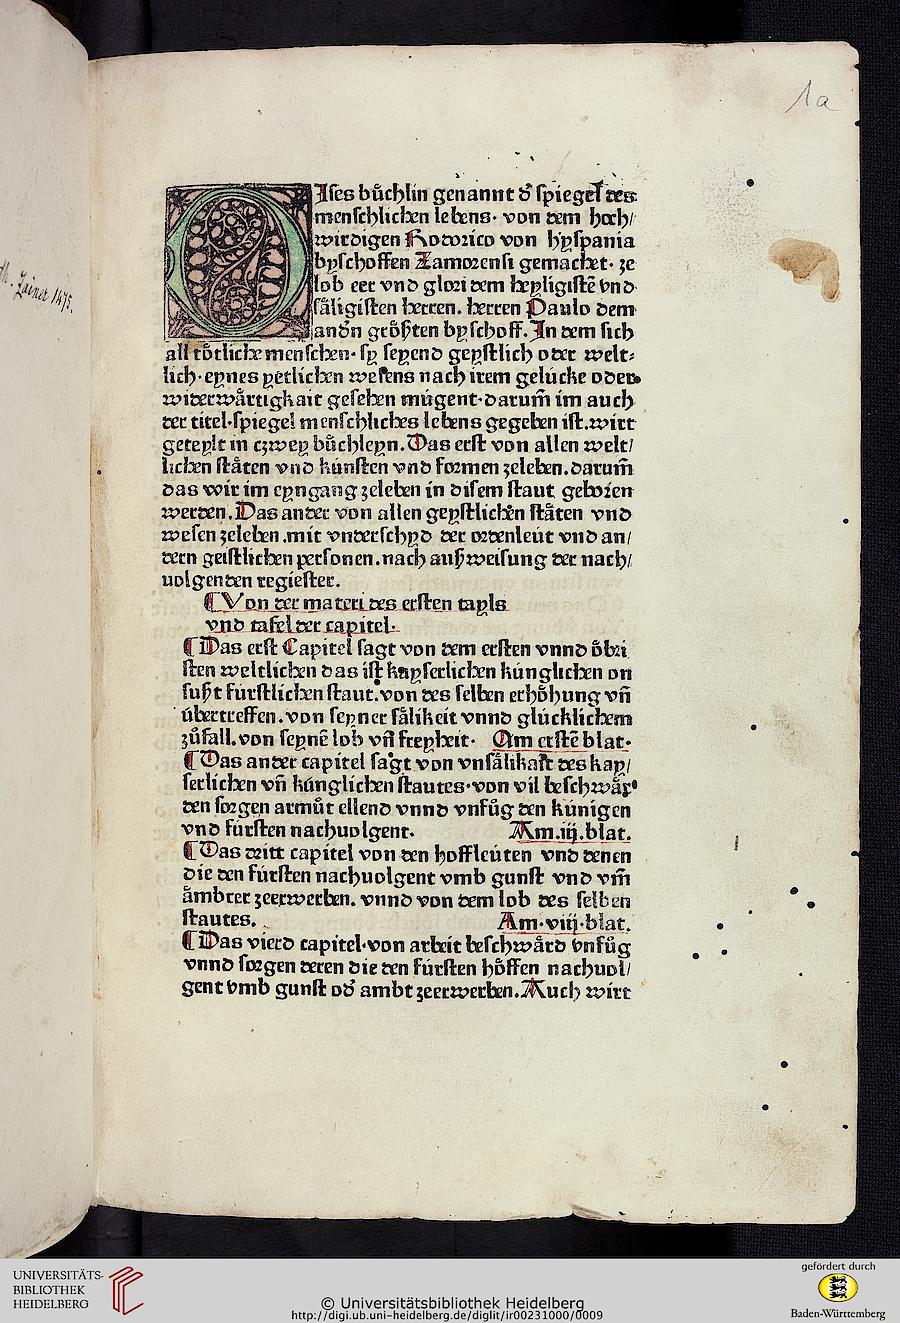 1a
th. Zainer 1475.
DIses bu̍chlin genannt d' spiegel des
menschlichen lebens· von dem hoch/
wirdigen Rodorico von hyspania
byschoffen Zamorensi gemachet· ze
lob eer vnd glori dem heyligistē vnd
sa̍ligisten herren. herren Paulo dem
andn̄ gro̍ßten byschoff. In dem sich
all to̍tliche menschen· sy seyend geystlich oder welt⸗
lich·eynes yetlichen wesens nach irem gelücke oder
widerwa̍rtigkait gesehen mügent·darum̄ im auch
der titel·spiegel menschliches lebens gegeben ist.wirt
geteylt in czwey bu̍chleyn. Das erst von allen welt/
lichen sta̍ten vnd künsten vnd formen zeleben. darum̄
das wir im eyngang zeleben in disem staut geboren
werden. Das ander von allen geystlichen sta̍ten vnd
wesen zeleben .mit vnderschyd der ordenleüt vnd an/
dern geistlichen personen.nach außweisung der nach/
uolgenden regiester.
¶ Von der materi des ersten tayls
vnd tafel der capitel·
¶ Das erst Capitel sagt von dem ersten vnnd o̍bri
sten weltlichen das ist kayserlichen künglichen on
sußt fürstlichen staut.von des selben erho̍hung vn̄
übertreffen.von seyner sa̍likeit vnnd glücklichem
zůfall.von seynē lob vn̄ freyheit· Am erstē blat·
¶ Das ander capitel sagt von vnsa̍likait des kay/
serlichen vn̄ künglichen stautes·von vil beschwa̍r
den sorgen armůt ellend vnnd vnfůg den künigen
vnd fürsten nachuolgent. Am.iij.blat.
¶ Das dritt capitel von den hoffleüten vnd denen
die den fürsten nachuolgent vmb gunst vnd vm̄
a̍mbter zeerwerben. vnnd von dem lob des selben
stautes. Am·viij·blat.
¶ Das vierd capitel·von arbeit beschwa̍rd vnfůg
vnnd sorgen deren die den fürsten ho̍ffen nachuol/
gent vmb gunst od' ambt zeerwerben. Auch wirt
UNIVERSITÄTS-
BIBLIOTHEK
HEIDELBERG
© Universitätsbibliothek Heidelberg
http://digi.ub.uni-heidelberg.de/diglit/ir00231000/0009
gefördert durch
Baden-Württemberg